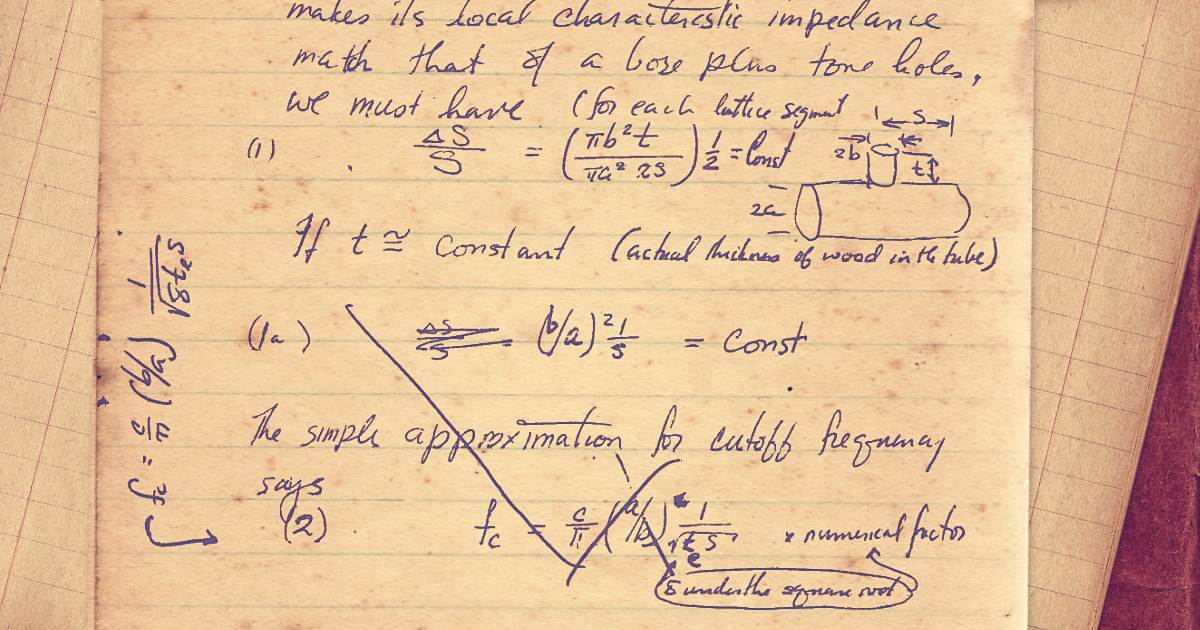 makes its local characteristic impedance
match that of a bore plus tone holes,
we must have (for each lattice segment
(1) ΔS/S = (πb²t / πa² 2s) 1/2 = Const
S
2b
t
2a
If t ≅ constant (actual thickness of wood in the tube)
(1a) ΔS/S = (b/a)² 1/s = Const
The simple approximation for cutoff frequency
says
(2) f_c = c/π (a/b) 1/√(t_e s) × numerical factor
8 under the square root
f_c = c/π (b/a) 1/√(8 t_e s)